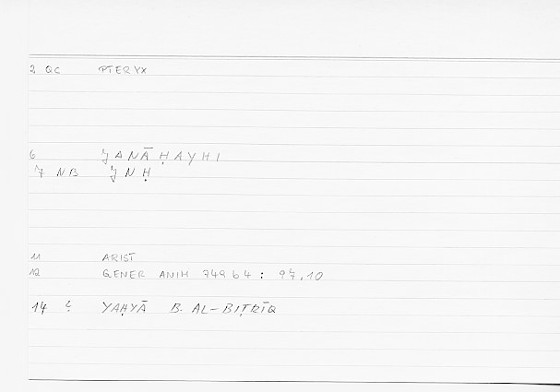 2 QC PTERYX
6 JANĀḤAYHI
7 NB JNḤ
11 ARIST
12 GENER ANIM 749b4 : 97.10
14 ? YAḤYĀ B. AL-BIṬRĪQ